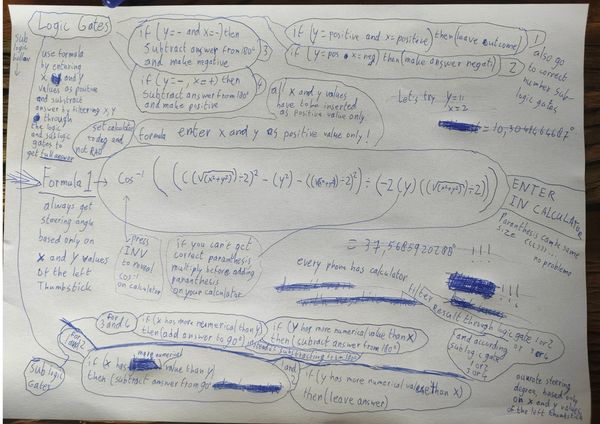 Logic Gates
sub
logic
below
use formula
by entering
x and y
values as positive
and substract
answer by filtering x, y
through
the logic
and sublogic
gates to
get full answer
if (y=- and x=-) then
Subtract answer from 180°
and make negative
3
if (y=-, x=+) then
Subtract answer from 180°
and make positive
4
if (y=positive and x=positive) then (leave outcome)
1
if (y=pos x=neg) then (make answer negati)
2
also go
to correct
number sub-
logic gates
all x and y values
have to be inserted
as positive value only
Let's try y=11
x=2
= 10,3048464687°
set calculator
to deg and
not RAD
formula enter x and y as positive value only!
Formula 1 → cos⁻¹ ((((√(x²+y²))÷2)² - (y²) - ((√(x²+y²))÷2)²) ÷ (-2(y)((√(x²+y²))÷2))
ENTER
IN CALCULATOR
Paranthesis can be same
size (((())...
no problems
always get
steering angle
based only on
x and y values
of the left
thumbstick
press
INV
to reveal
cos⁻¹
on calculator
if you can't get
correct paranthesis
multiply before adding
paranthesis
on your calculator
= 37,5685920288° !!!
every phone has calculator
filter result through logic gate 1or2
3or4
and according
sublogic gate
1or2
3or4
for
3 and 4
if (x has more numerical than y)
then (add answer to 90°)
if (y has more numerical value than x)
then (subtract answer from 180°)
instead of subtracting from 180°
for
1 and 2
Sub logic
Gates
if (x has more numerical value than y)
then (subtract answer from 90°
and
if (y has more numerical value than x)
then (leave answer)
accurate steering
degree, based only
on x and y values
of the left thumbstick